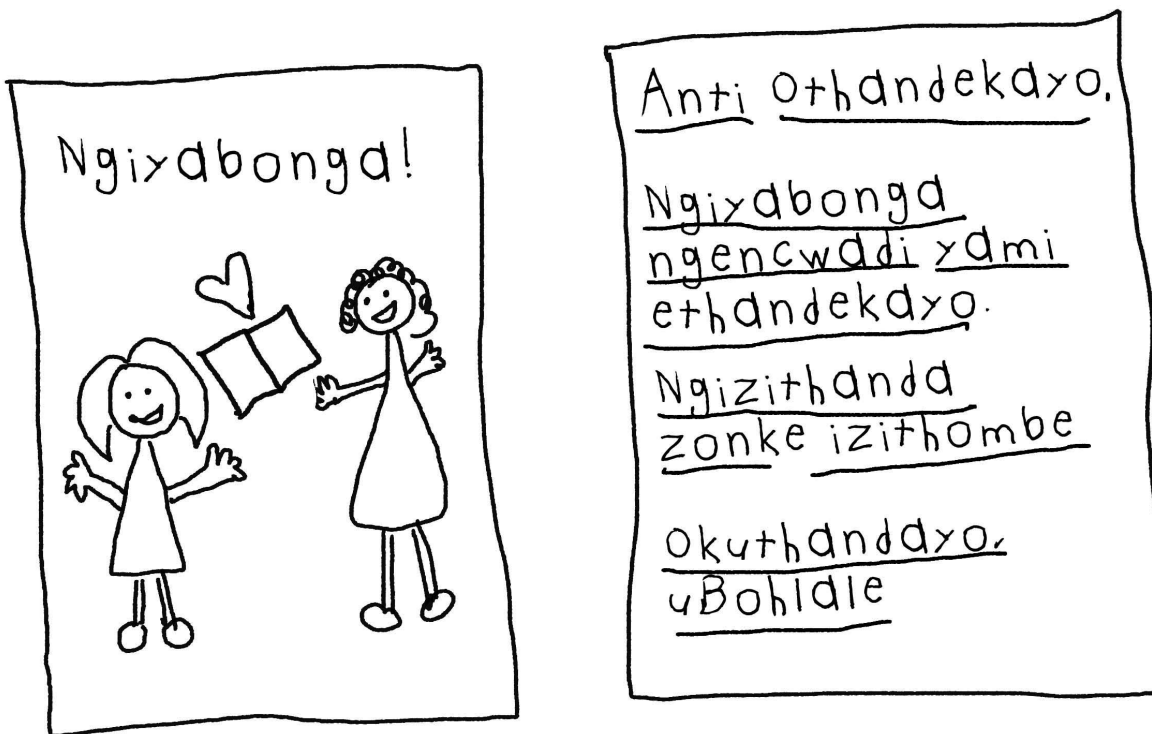 Ngiyabonga!
Anti Othandekayo,
Ngiyabonga
ngencwadi yami
ethandekayo.
Ngizithanda
zonke izithombe
Okuthandayo,
uBohlale